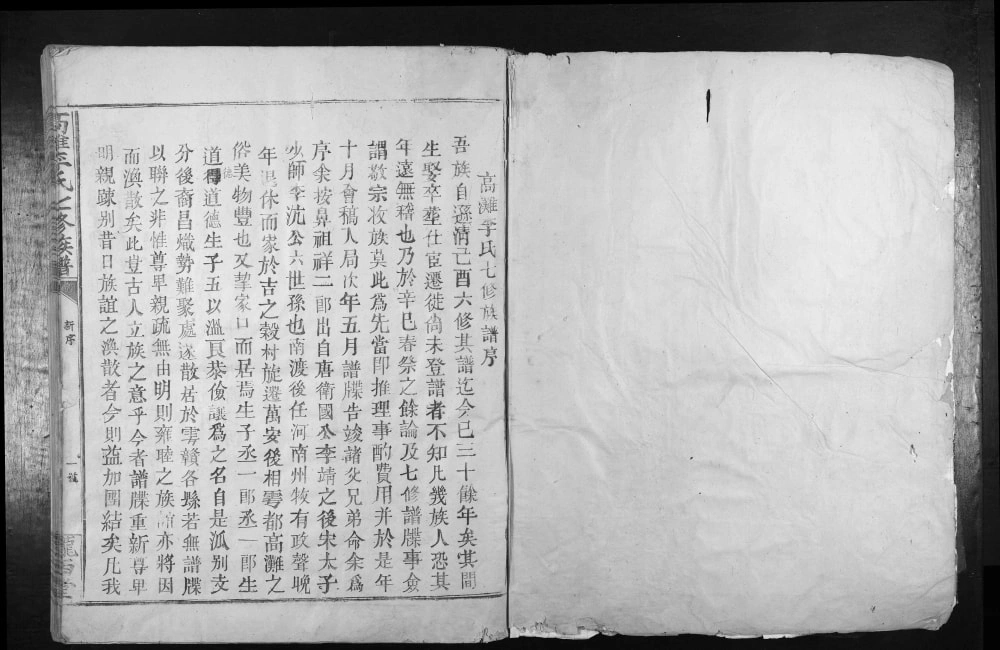 高灘李氏七修族譜序
吾族自遜清己酉六修其譜迄今已三十餘年矣其間
生娶卒塟仕宦遷徙尚未登譜者不知凡幾族人恐其
年遠無稽也乃於辛巳春祭之餘論及七修譜牒事僉
謂敬宗收族莫此爲先當卽推理事酌費用并於是年
十月會稿人局次年五月譜牒告竣諸父兄弟命余爲
序余按鼻祖祥二郎出自唐衛國公李靖之後宋太子
少師李沆公六世孫也南渡後任河南州牧有政聲晚
年退休而家於吉之穀村旋遷萬安後相雩都高灘之
俗美物豐也又挈家口而居焉生子丞一郎丞一郎生
道得道德生子五以溫良恭儉讓爲之名自是派别支
分後裔昌熾勢難聚處遂散居於雩贛各縣若無譜牒
以聯之非惟尊卑親疏無由明則雍睦之族誼亦將因
而渙散矣此豈古人立族之意乎今者譜牒重新尊卑
明親疎别昔日族誼之渙散者今則益加團結矣凡我
李氏七修族譜
新序
一號
隴西堂